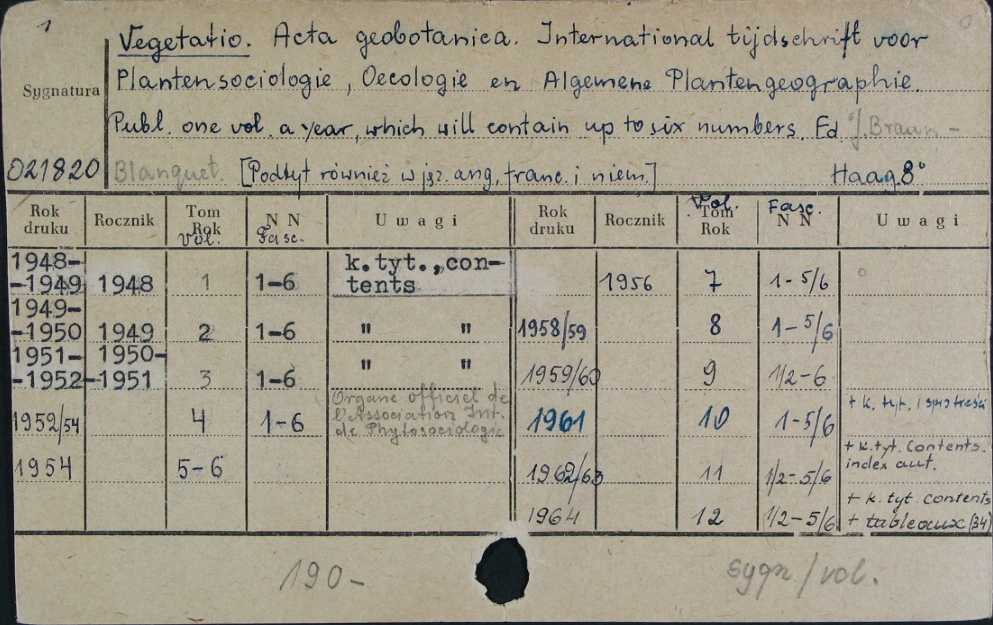 1
Vegetatio. Acta geobotanica. International tijdschrift voor
Plantensociologie, Oecologie en Algemene Plantengeographie.
Sygnatura
Publ. one vol. a year, which will contain up to six numbers. Ed. J. Braun-
021820 Blanquet. [Podtyt również w jęz. ang, franc. i niem.] Haag 8°
Rok druku Rocznik Tom Rok Vol. N N Fasc. Uwagi Rok druku Rocznik Vol. Tom Rok Fasc. N N Uwagi
1948- k.tyt., con-
-1949 1948 1 1-6 tents 1956 7 1-5/6
1949-
-1950 1949 2 1-6 " " 1958/59 8 1-5/6
1951- 1950- " "
-1952 -1951 3 1-6 1959/60 9 1/2-6
Organe officiel de
1952/54 4 1-6 l'Association Int. 1961 10 1-5/6 + k. tyt. i spis treści
de Phytosociologie
1954 5-6 1962/63 11 1/2-5/6 + k.tyt. contents.
index aut.
1964 12 1/2-5/6 + k. tyt contents
+ tableaux (34)
190-
sygn/vol.